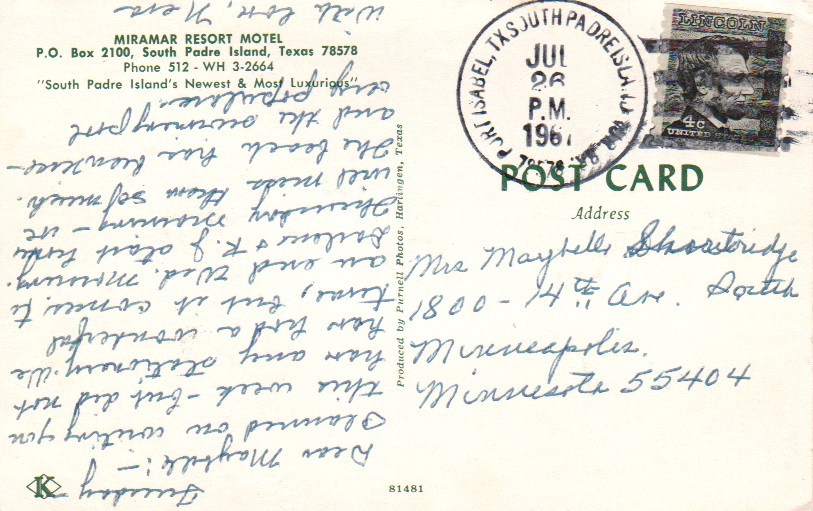 MIRAMAR RESORT MOTEL
P.O. Box 2100, South Padre Island, Texas 78578
Phone 512 - WH 3-2664
"South Padre Island's Newest & Most Luxurious"
Tuesday
Dear Maybelle:-
Planned on writing you
this week - but did not
have any stationery. We
have had a wonderful
time, but it comes to
an end Wed. morning.
Darlene & K.J. start home
Thursday morning - we
will miss them so much.
The beach has been nice -
and the swimming pool
very popular.
With love, Neva
Produced by Purnell Photos, Harlingen, Texas
PORT ISABEL, TX SOUTH PADRE ISLAND
JUL
26
P.M.
1967
78578
LINCOLN
4c
UNITED STATES
POST CARD
Address
Mrs Maybelle Shortridge
1800 - 14th Ave. South
Minneapolis.
Minnesota 55404
K
81481